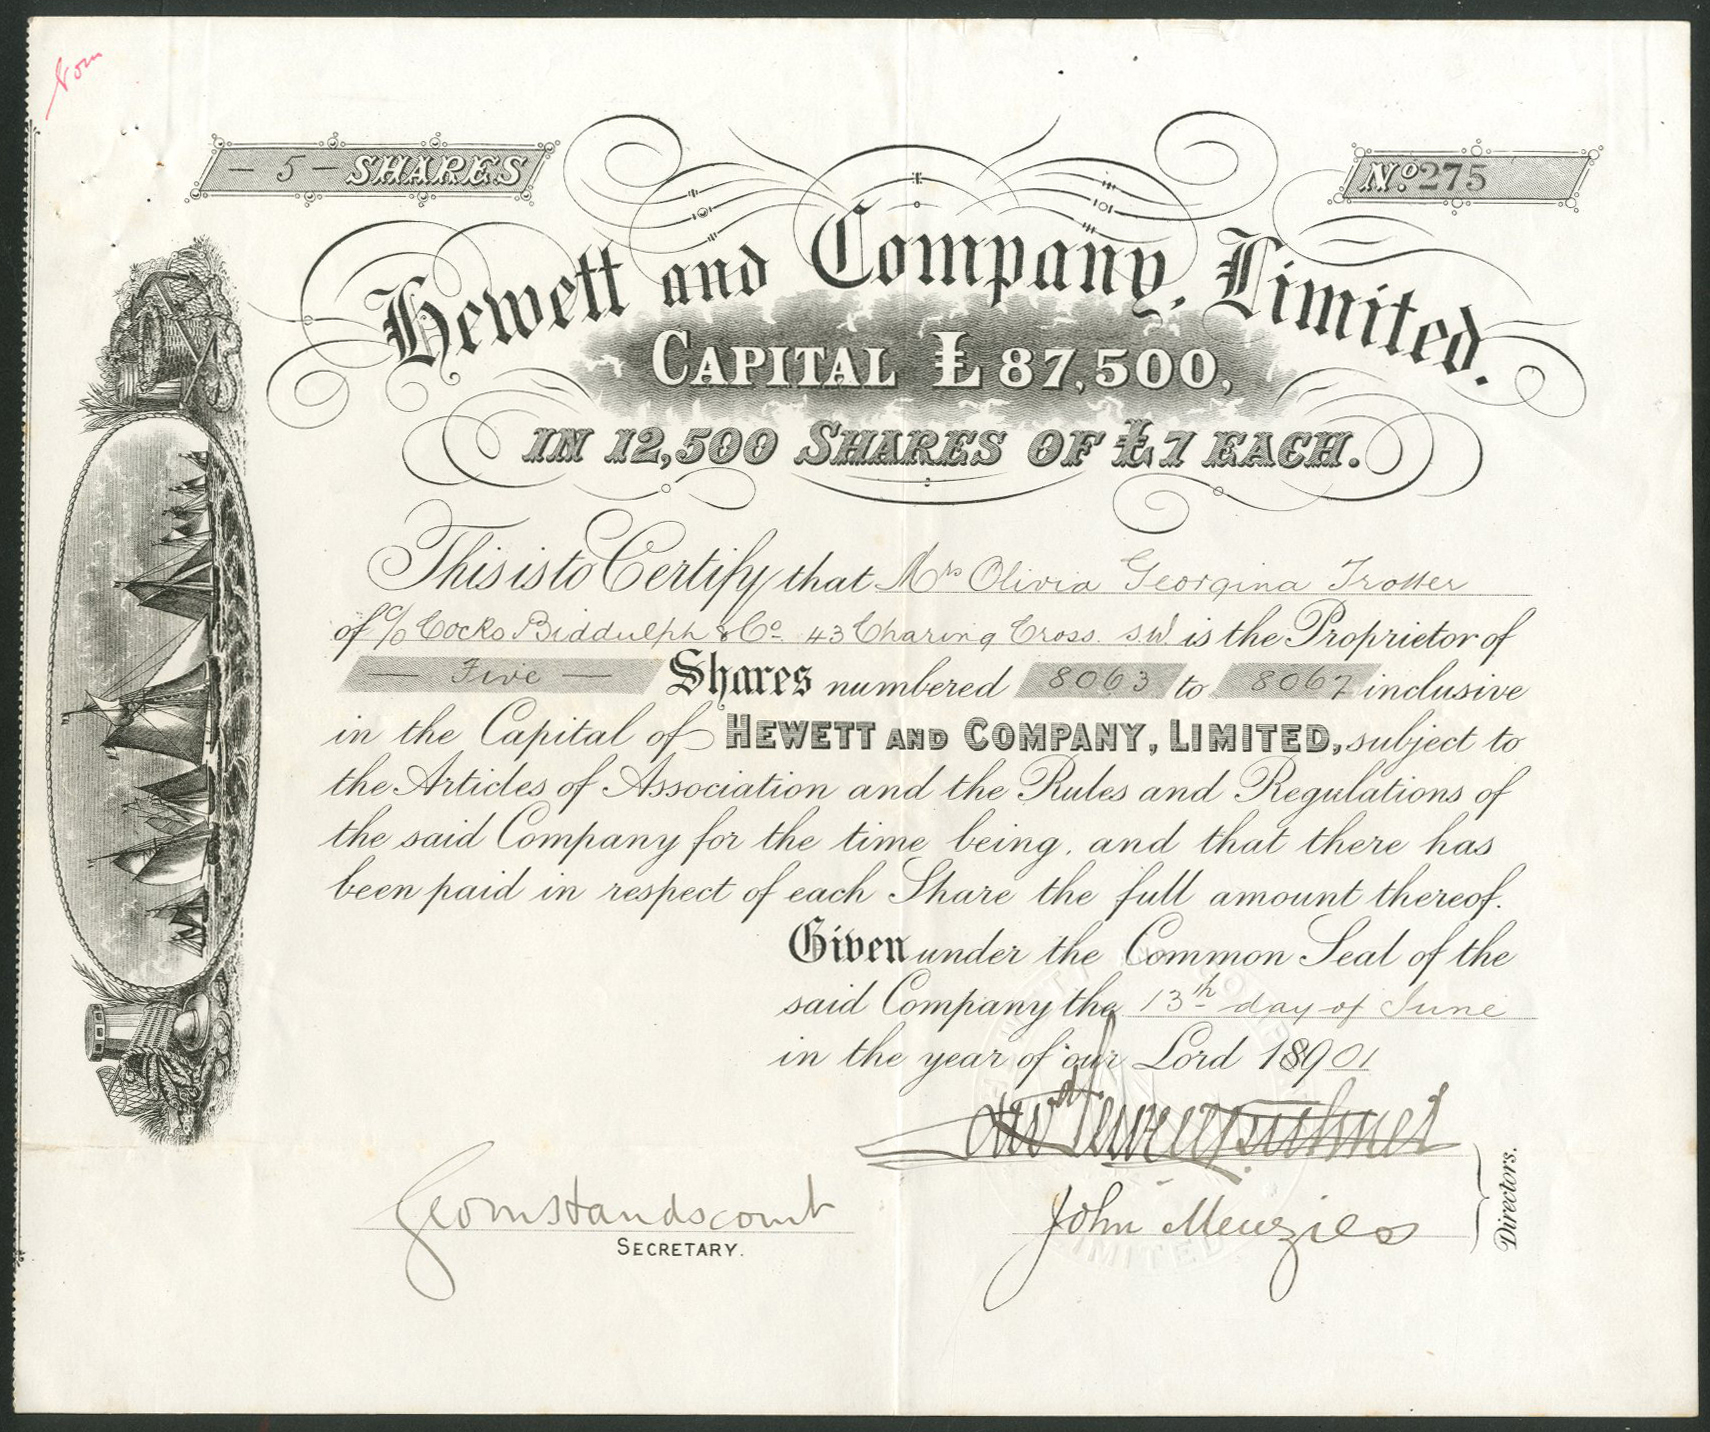 from
— 5 — SHARES
No. 275
Hewett and Company, Limited.
CAPITAL £87,500,
IN 12,500 SHARES OF £7 EACH.
This is to Certify that Mrs Olivia Georgina Trotter
of c/o Cocks Biddulph & Co. 43 Charing Cross. S.W. is the Proprietor of
— Five — Shares numbered 8063 to 8067 inclusive
in the Capital of HEWETT AND COMPANY, LIMITED, subject to
the Articles of Association and the Rules and Regulations of
the said Company for the time being, and that there has
been paid in respect of each Share the full amount thereof.
Given under the Common Seal of the
said Company the 13th day of June
in the year of our Lord 18901
John Menzies
Directors.
SECRETARY.
LIMITED